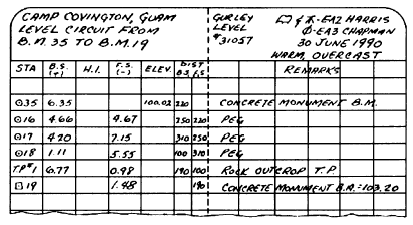 CAMP COVINGTON, GUAM
LEVEL CIRCUIT FROM
B.M. 35 TO B.M. 19
GURLEY
LEVEL
#31057
& -EA2 HARRIS
-EA3 CHAPMAN
30 JUNE 1990
WARM, OVERCAST
STA B.S. (+) H.I. F.S. (-) ELEV. DIST B.S. F.S. REMARKS
35 6.35 100.02 220 CONCRETE MONUMENT B.M.
16 4.66 4.67 250 220 PEG
17 4.20 7.15 310 250 PEG
18 1.11 5.55 100 310 PEG
TP#1 6.77 0.98 190 100 ROCK OUTCROP T.P.
19 1.48 190 CONCRETE MONUMENT B.M.=103.20